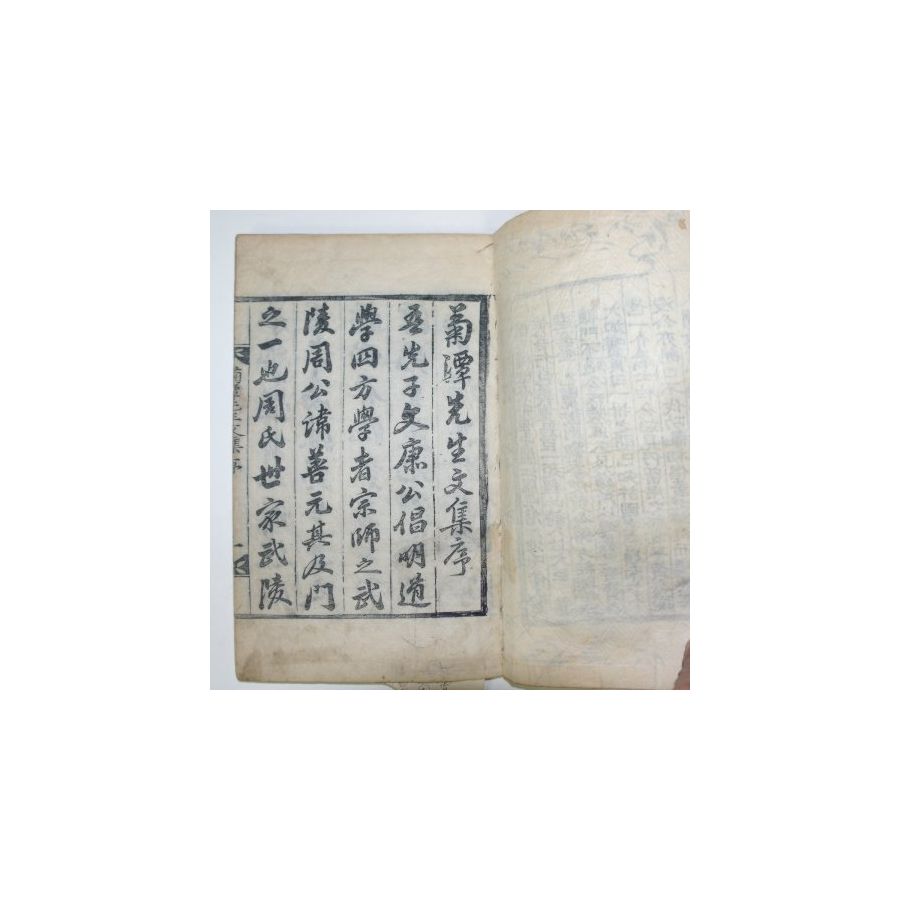 菊潭先生文集序
吾先子文康公倡明道
學四方學者宗師之武
陵周公諱善元其及門
之一也周氏世家武陵
菊潭先生文集序
一